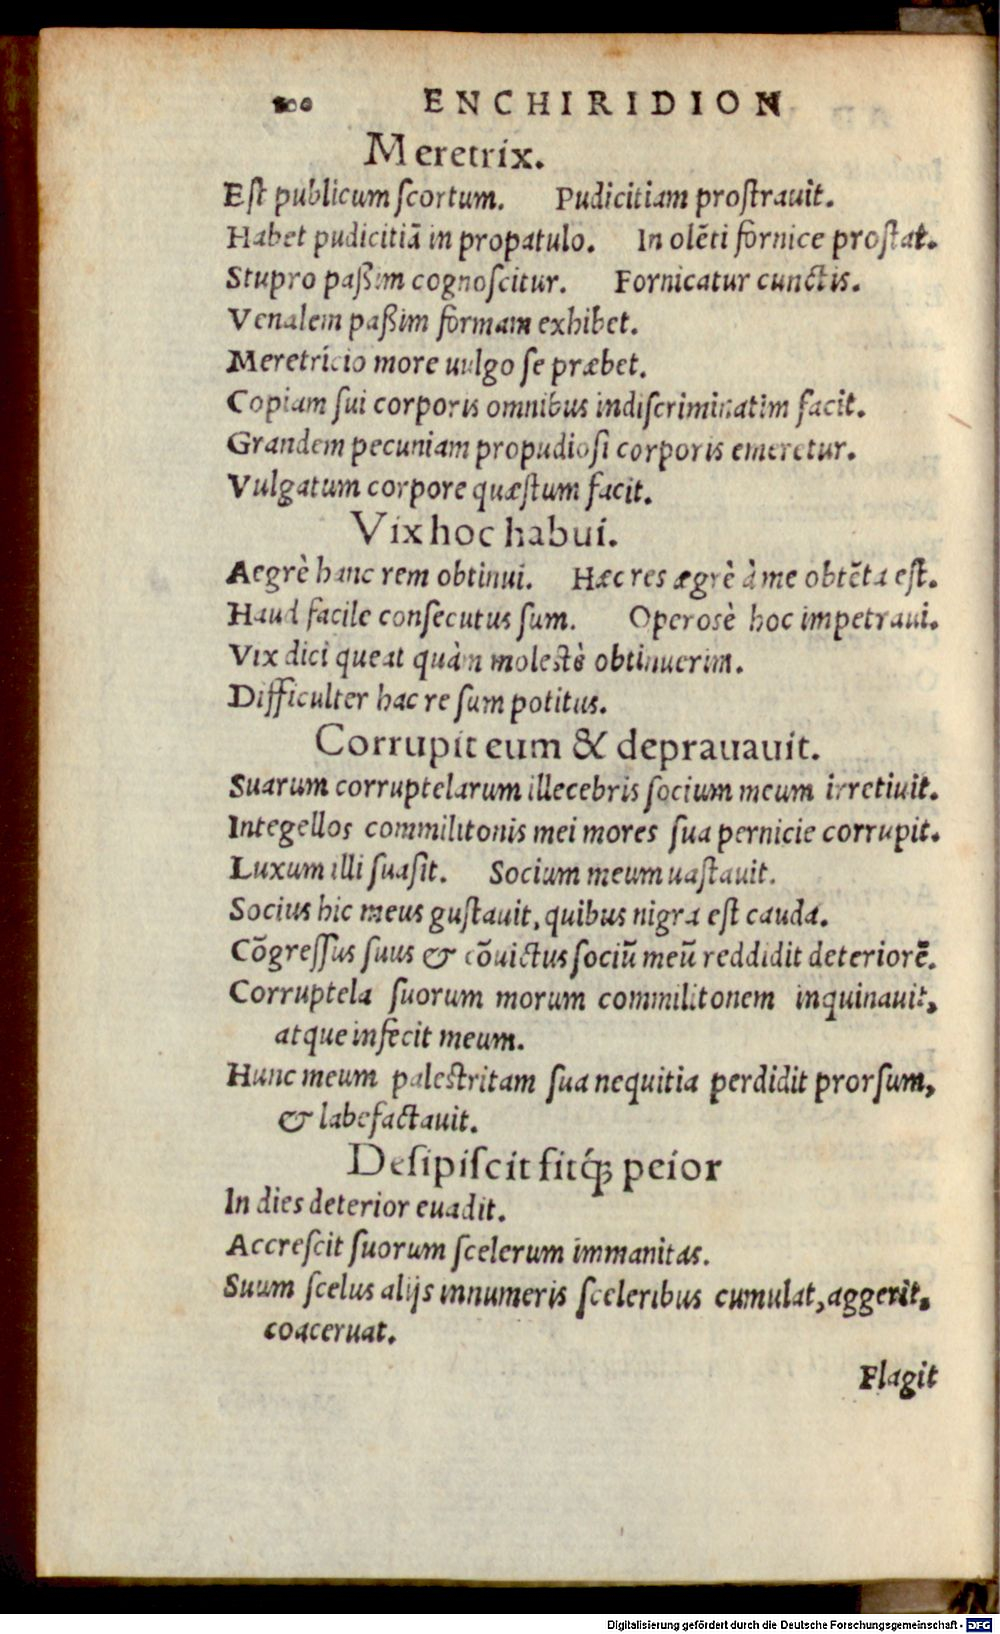 200 ENCHIRIDION
Meretrix.
Est publicum scortum. Pudicitiam prostrauit.
Habet pudicitiã in propatulo. In olẽti fornice prostat.
Stupro paßim cognoscitur. Fornicatur cunctis.
Venalem paßim formam exhibet.
Meretricio more uulgo se præbet.
Copiam sui corporis omnibus indiscriminatim facit.
Grandem pecuniam propudiosi corporis emeretur.
Vulgatum corpore quæstum facit.
Vix hoc habui.
Aegrè hanc rem obtinui. Hæc res ægrè à me obtẽta est.
Haud facile consecutus sum. Operosè hoc impetraui.
Vix dici queat quàm molestè obtinuerim.
Difficulter hac re sum potitus.
Corrupit eum & deprauauit.
Suarum corruptelarum illecebris socium meum irretiuit.
Integellos commilitonis mei mores sua pernicie corrupit.
Luxum illi suasit. Socium meum uastauit.
Socius hic meus gustauit, quibus nigra est cauda.
Cõgressus suus & cõuictus sociũ meũ reddidit deteriorẽ.
Corruptela suorum morum commilitonem inquinauit,
atque infecit meum.
Hunc meum palestritam sua nequitia perdidit prorsum,
& labefactauit.
Desipiscit fitq́; peior
In dies deterior euadit.
Accrescit suorum scelerum immanitas.
Suum scelus alijs innumeris sceleribus cumulat, aggerit,
coaceruat.
Flagit
Digitalisierung gefördert durch die Deutsche Forschungsgemeinschaft - DFG